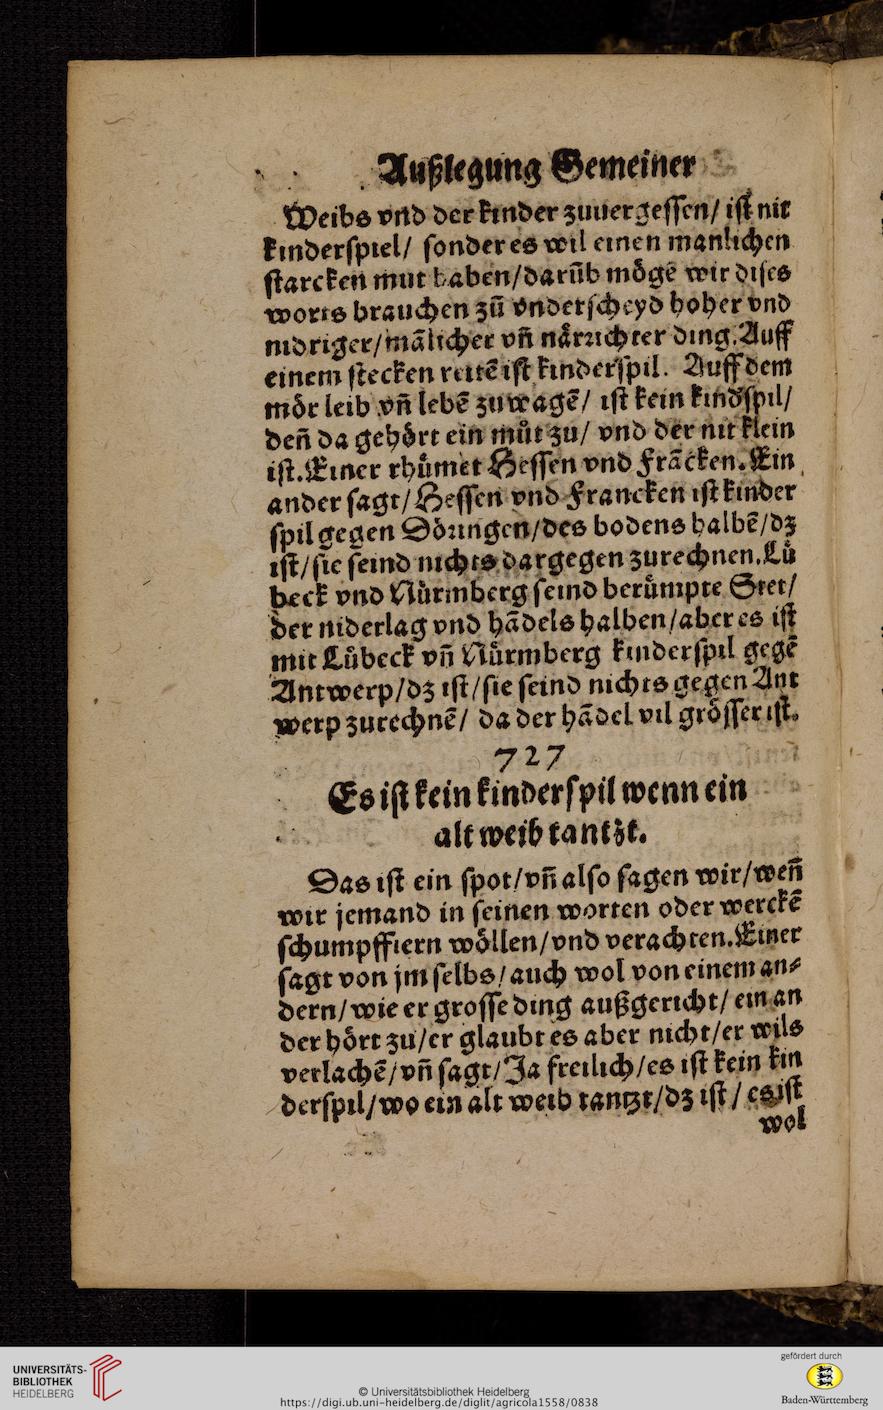 Außlegung Gemeiner
Weibs vnd der kinder zuuergeſſen/ iſt nit
kinderſpiel/ ſonder es wil einen manlichen
ſtarcken mut haben/darũb mögẽ wir diſes
worts brauchen zů vnderſcheyd hoher vnd
nidriger/mãlicher vñ närꝛichter ding. Auff
einem ſtecken reitẽ iſt kinderſpil. Auff dem
mör leib vñ lebẽ zu wagẽ/ iſt kein kindſpil/
deñ da gehört ein můt zu/ vnd der nit klein
iſt. Einer rhůmet Heſſen vnd Frãcken. Ein
ander ſagt/Heſſen vnd Francken iſt kinder
ſpil gegen Döꝛingen/des bodens halbẽ/dz
iſt/ſie ſeind nichts dargegen zurechnen. Lů
beck vnd Nůrmberg ſeind berůmpte Stet/
der niderlag vnd hãdels halben/aber es iſt
mit Lůbeck vñ Nůrmberg kinderſpil gegẽ
Antwerp/dz iſt/ſie ſeind nichts gegen Ant
werp zurechnẽ/ da der hãdel vil gröſſer iſt.
727
Es iſt kein kinderſpil wenn ein
alt weib tantzt.
Das iſt ein ſpot/vñ alſo ſagen wir/weñ
wir jemand in ſeinen worten oder werckẽ
ſchumpffiern wöllen/vnd verachten. Einer
ſagt von jm ſelbs/ auch wol von einem an⸗
dern/wie er groſſe ding außgericht/ ein an
der hört zu/er glaubt es aber nicht/er wils
verlachẽ/vñ ſagt/Ja freilich/es iſt kein kin
derſpil/wo ein alt weib tantzt/dz iſt/ es iſt
wol
UNIVERSITÄTS-
BIBLIOTHEK
HEIDELBERG
© Universitätsbibliothek Heidelberg
https://digi.ub.uni-heidelberg.de/diglit/agricola1558/0838
gefördert durch
Baden-Württemberg